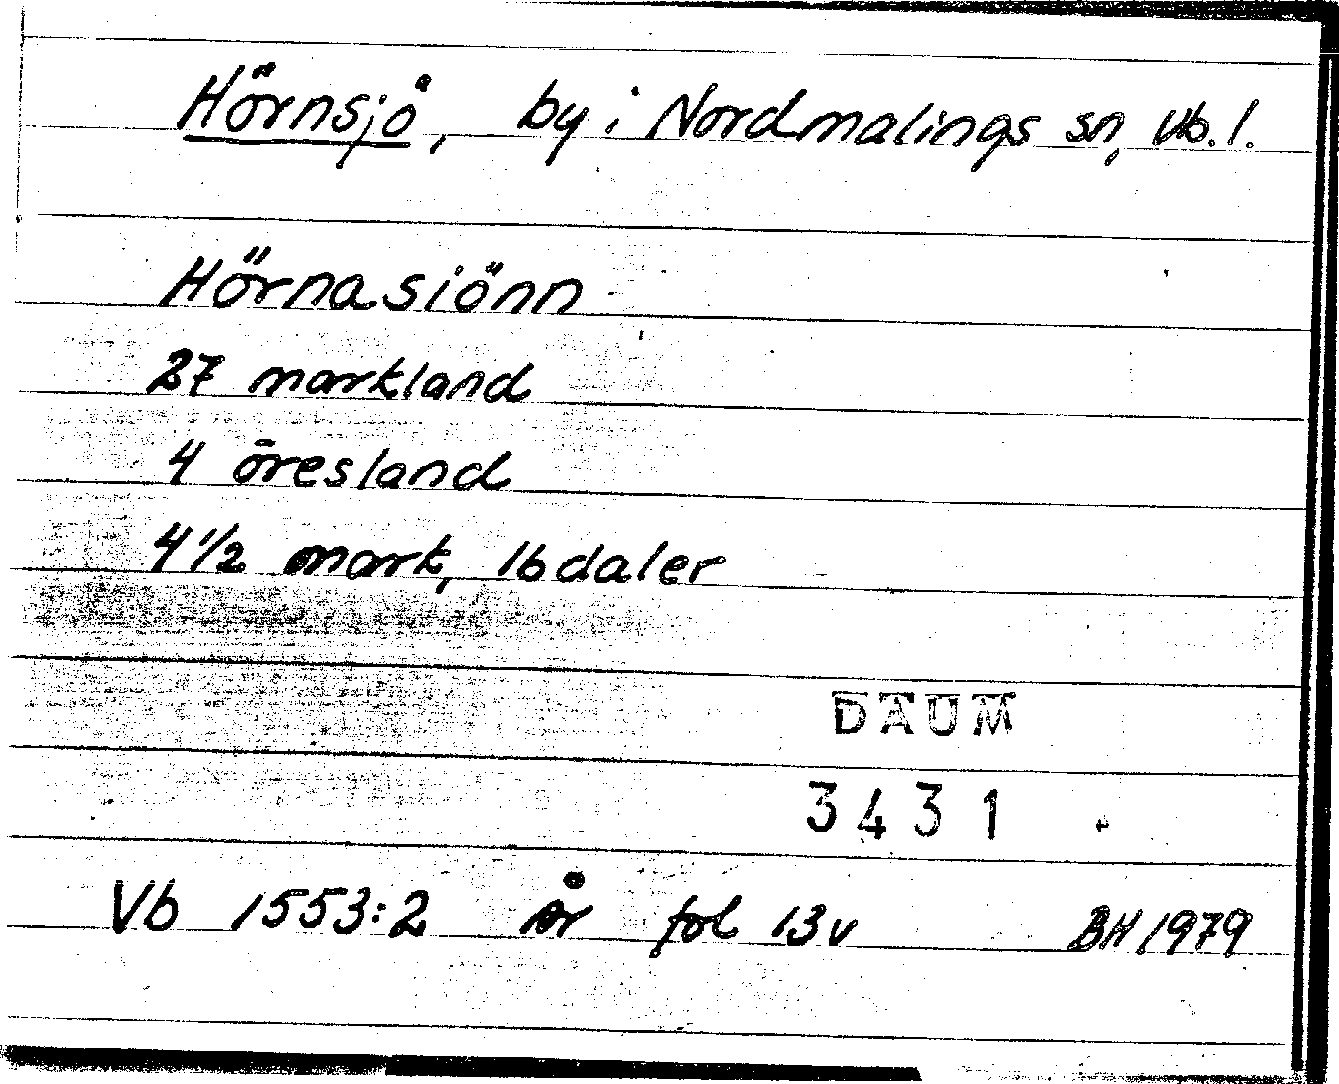 Hörnsjö, by i Nordmalings sn, Vb. l.
Hörnasiönn
27 markland
4 öresland
4 1/2 mark, 16 daler
DAUM
3431
Vb 1553:2 år fol 13v BH 1979